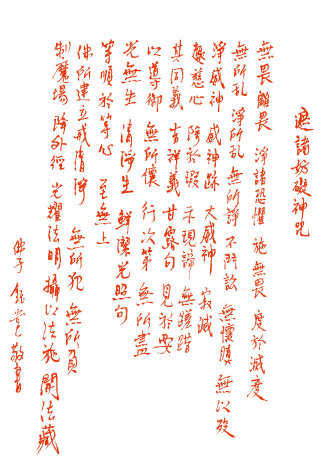 諸妨礙神咒
無畏離畏 淨諸恐懼 施無畏 度於滅度
無所亂 淨所亂 無所諍 不鬥訟 無懷 無以破
淨威神 威神跡 大威神 寂滅
慈心 除於 示現諦
其因義 吉祥義 甘露句 見於要
以導御 無所懷 行次第 無所盡
光無生 清淨生 鮮潔光照句
等順於等心 至無上
佛所建立戒清淨 無所犯 無所負
制魔場 降外徑 光耀法明 攝以法施 開法藏
佛子 敬書